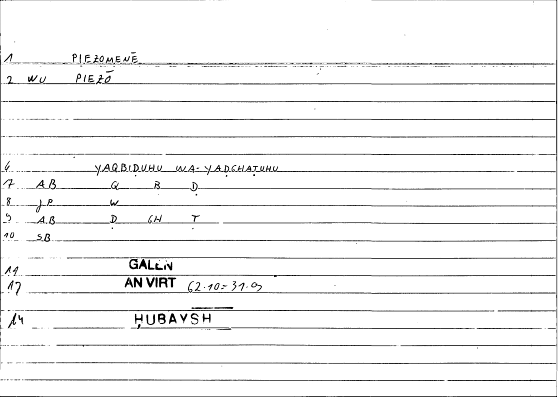 1 PIEZOMENĒ
2 WU PIEZŌ
6 YAQBIḌUHU WA-YAḌGHAṬUHU
7 AB Q B Ḍ
8 J.P. W
9 AB Ḍ GH Ṭ
10 SB
11 GALEN
13 AN VIRT 62.10=31.9
14 ḤUBAYSH